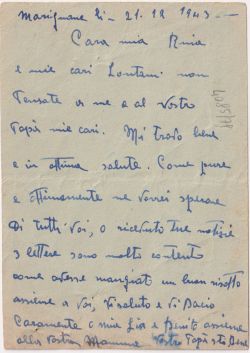 Marignane li - 21. 12 1943 -
Cara mia Rina
e miei cari Lontani non
Pensate di me e al Vostro
Papà miei cari. Mi trovo bene
e in ottima salute. Come pure
e ottimamente ne vorrei sperare
Di tutti Voi, o ricevuto tue notizie
3 lettere sono molto contento
come avesse mangiat un buon risotto
assieme a Voi, Vi saluto e Vi Bacio
Caramente o mia e Benito assieme
alla Vostra Mamma Vostro Papà sto Bene